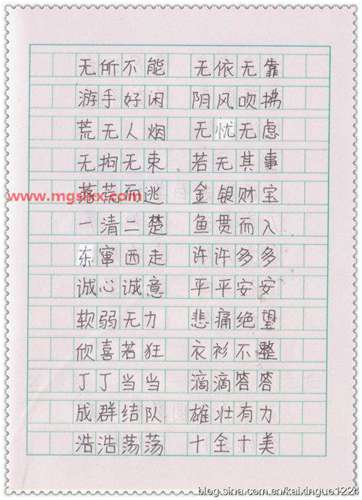 无所不能 无依无靠
游手好闲 阴风吹拂
荒无人烟 无忧无虑
无拘无束 若无其事
www.mgsxx.com 落荒而逃 金银财宝
一清二楚 鱼贯而入
东窜西走 许许多多
诚心诚意 平平安安
软弱无力 悲痛绝望
欣喜若狂 衣衫不整
丁丁当当 滴滴答答
成群结队 雄壮有力
浩浩荡荡 十全十美
blog.sina.com.cn/kaixingue1224